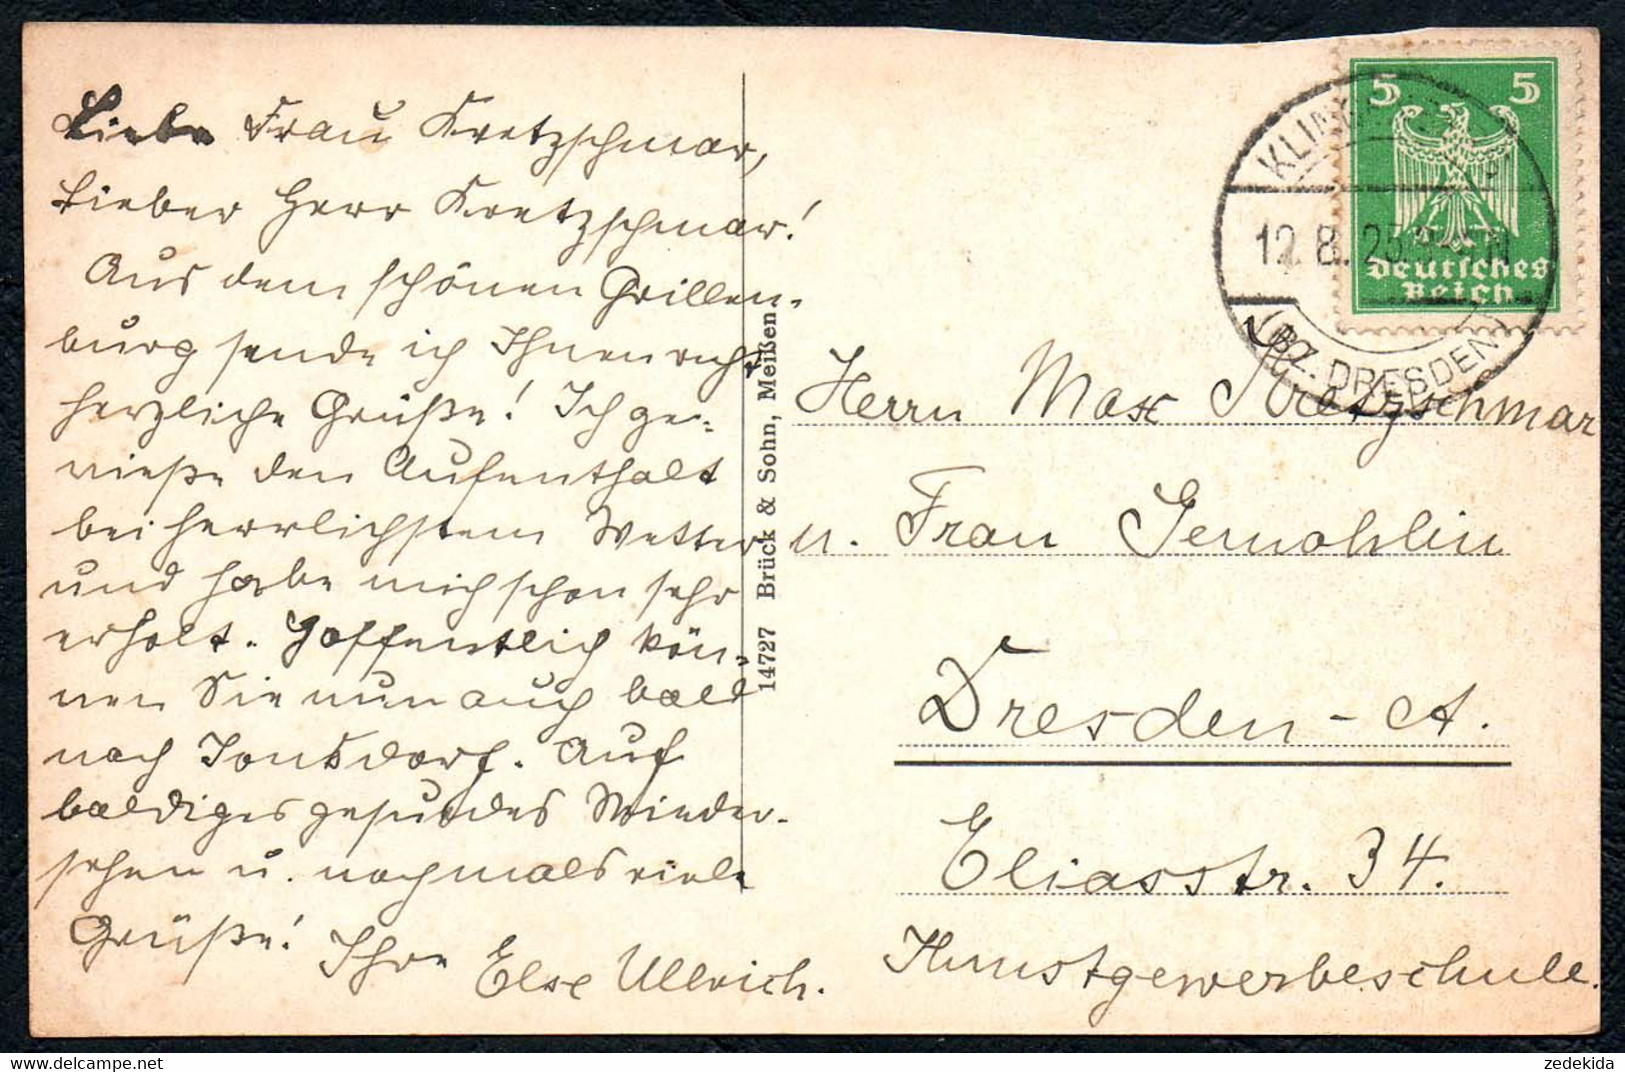 Liebe Frau Kretzschmar,
Lieber Herr Kretzschmar!
Aus dem schönen Grillen-
burg sende ich Ihnen recht
herzliche Grüße! Ich ge-
nieße den Aufenthalt
bei herrlichstem Wetter
und habe mich schon sehr
erholt. Hoffentlich kön-
nen Sie nun auch bald
nach Jonsdorf. Auf
baldiges gesundes Wieder-
sehen u. nochmals viele
Grüße! Ihre Else Ullrich.
14727 Brück & Sohn, Meißen
5 5
Deutsches
Reich
12.8.25
(BZ. DRESDEN)
Herrn Max Kretzschmar
u. Frau Gemahlin
Dresden-A.
Eliasstr. 34.
Kunstgewerbeschule.
delcampe.net
zedekida